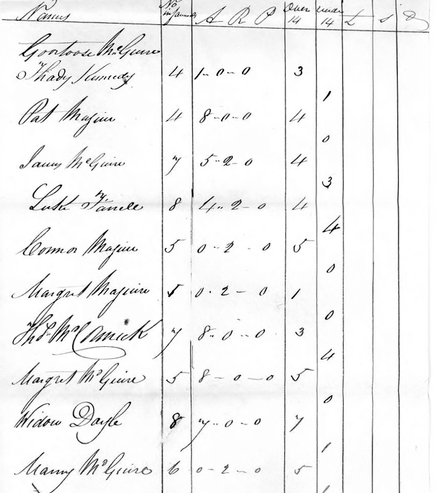 Names No in family A R P Over 14 under 14 £ s d
McGuire
Thady Kennedy 4 1-0-0 3 1
Pat Maguire 4 8-0-0 4 0
James McGuire 7 5-2-0 4 3
Luke Farrell 8 4-2-0 4 4
Connor Maguire 5 0-2-0 5 0
Margret Maguire 5 0-2-0 1 4
Thos McCamick 7 8-0-0 3 4
Margret McGuire 5 8-0-0 5 0
Widow Doyle 8 7-0-0 7 1
McGuire 6 0-2-0 5 1